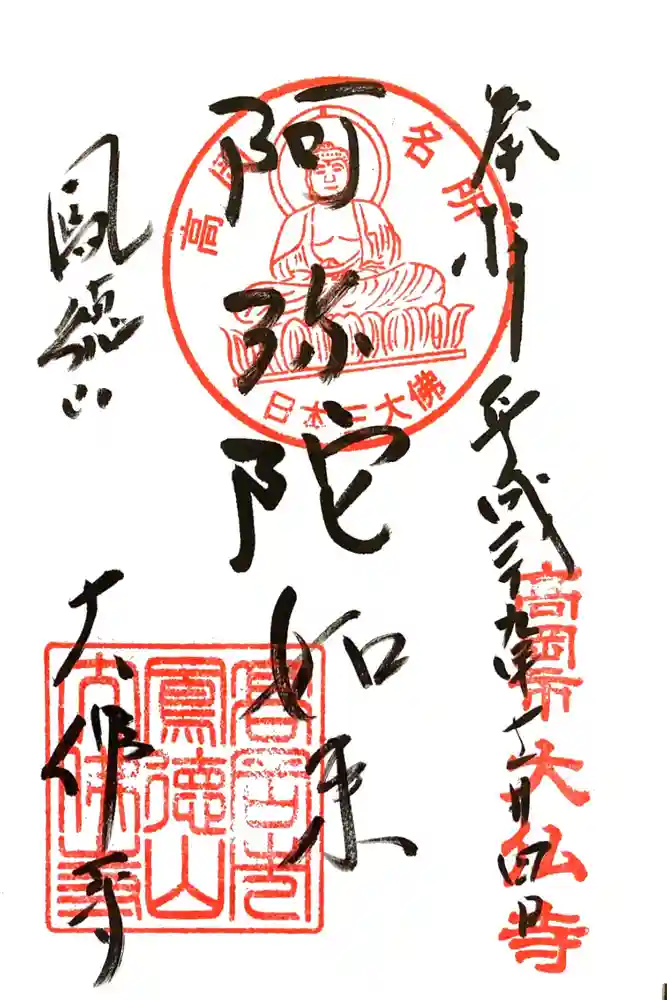 奉拝
平成二十九年十一月四日
高岡市大仏寺
高岡名所
日本三大佛
阿弥陀如来
鳳徳山
大佛寺
高岡市
鳳徳山
大佛寺